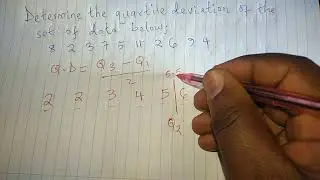 Determine the quartile deviation of the
set of data below;
8 2 3 7 5 11 2 6 9 4
Q.D = Q3 - Q1
2
2 2 3 4 5 6
Q2